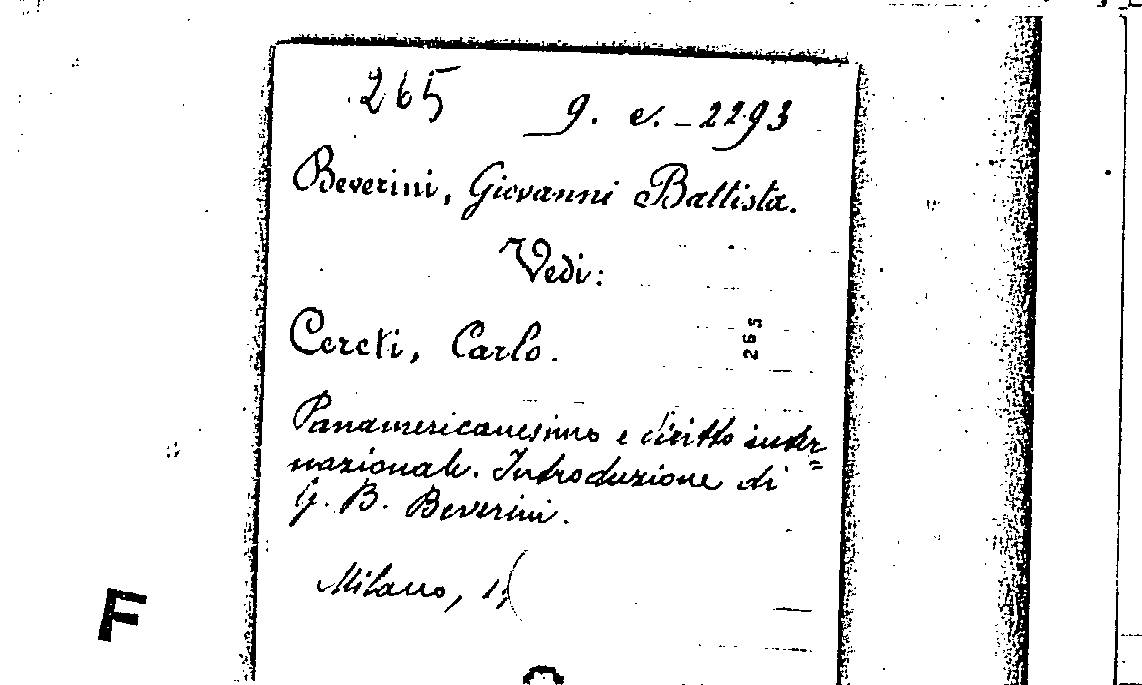 265
g. e. - 2293
Beverini, Giovanni Battista.
Vedi:
Cereti, Carlo.
265
Panamericanesimo e diritto inter=
nazionale. Introduzione di
G. B. Beverini.
Milano, 1
F